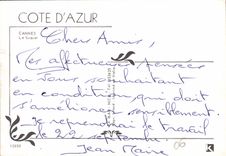 COTE D'AZUR
CANNES
Chers Amis,
Mes affectueuses pensées
en vous souhaitant
en condition qui doit
s'améliorer sensiblement.
Je reprendrai le travail
le 22 septembre.
Jean Marie